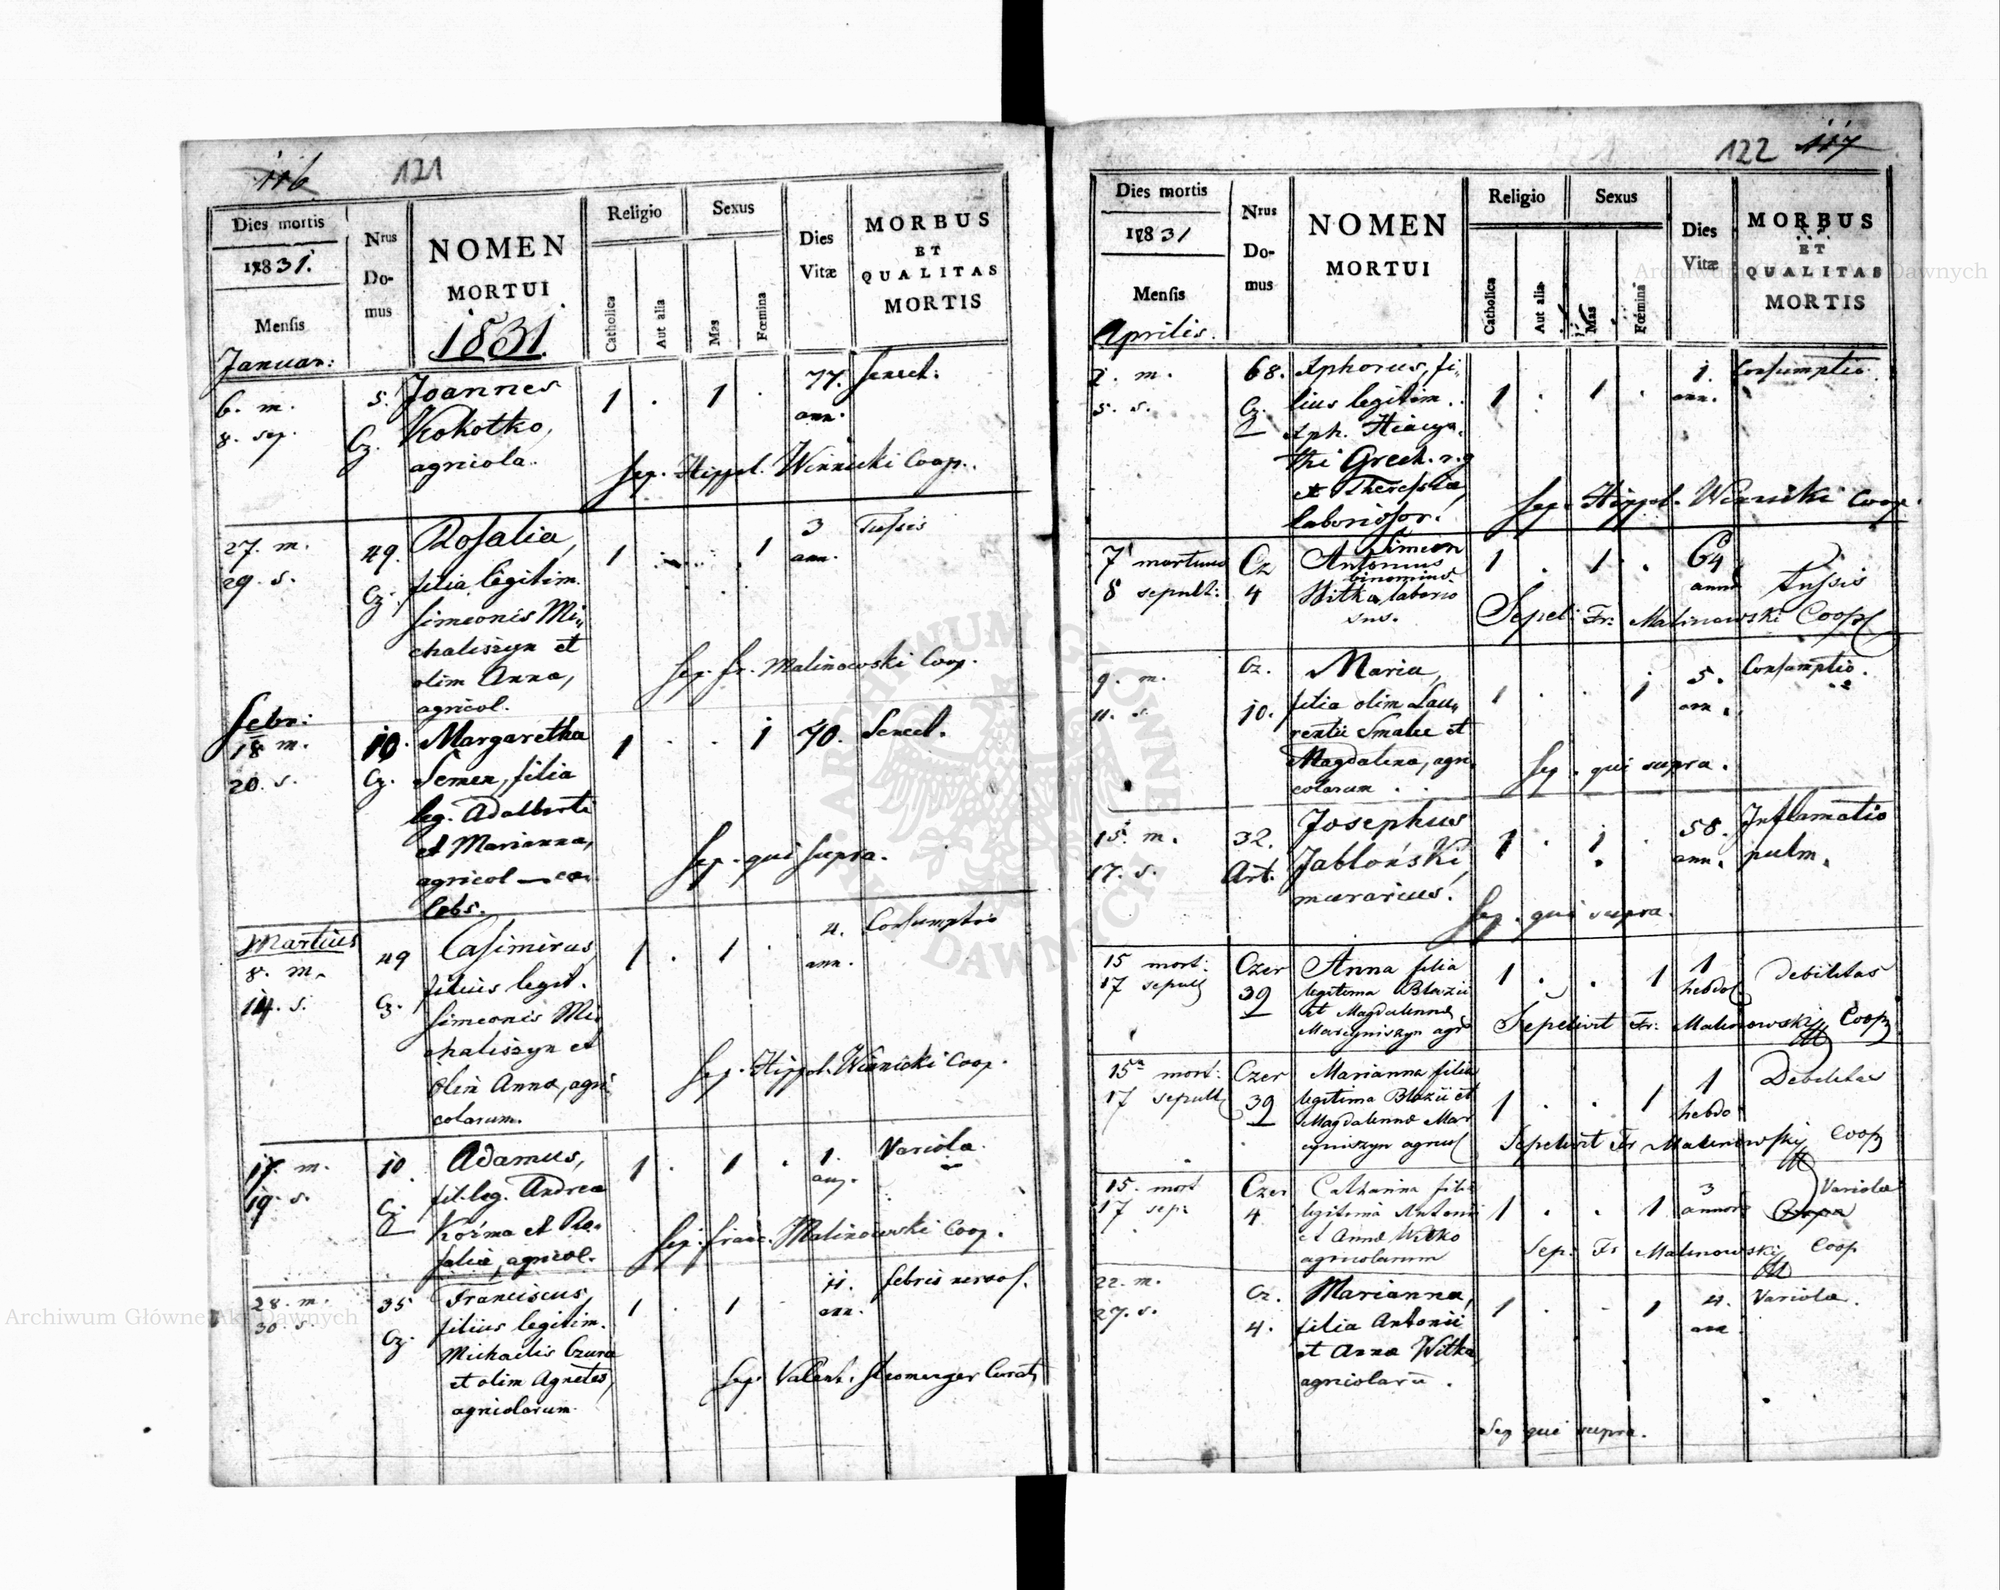 116 121
Dies mortis
1831.
Mensis
Nrus
Do-
mus
NOMEN
MORTUI
1831.
Religio
Catholica
Aut alia
Sexus
Mas
Fœmina
Dies
Vitæ
MORBUS
ET
QUALITAS
MORTIS
Januar:
6. m. 5. Joannes 1 . 1 . 77. Senect.
8. sep. Cz. Kokotko, ann.
agricola.
Sep. Hippol. Winnicki Coop.
27. m. 49. Rosalia, 1 . . 1 3 Tussis
29. s. Cz. filia legitim. ann.
Simeonis Mi„
chaliszyn et
olim Anna,
agricol.
Sep. fr. Malinowski Coop.
Febr:
18 m. 10. Margaretha 1 . . 1 70. Senect.
20. s. Cz. Semen, filia
leg. Adalberti
et Marianna,
agricol — cœ
lebs.
Sep. qui supra.
Martius
8. m. 49 Casimirus, 1 . 1 . 4. Consumptio
14. s. Cz. filius legit. ann.
Simeonis Mi
chaliszyn et
olim Anna, agri
colarum.
Sep. Hippol. Winnicki Coop.
17. m. 10 Adamus, 1 . 1 . 1. Variola.
19. s. Cz. fil. leg. Andrea
Koźma et Ro„
salia, agricol.
Sep. franc. Malinowski Coop.
28. m. 35 Franciscus, 1 . 1 4. febris nervos.
30. s. Cz. filius legitim. ann.
Michaelis Czura
et olim Agnetes,
agricolarum.
Sep. Valent.
122 117
Dies mortis
1831
Mensis
Nrus
Do-
mus
NOMEN
MORTUI
Religio
Catholica
Aut alia
Sexus
Mas
Fœmina
Dies
Vitæ
MORBUS
ET
QUALITAS
MORTIS
Aprilis.
m. 68. fi„ 1 . 1 . 1. Consumptio
5. s. Cz. lius legitim. ann.
et Theressia,
laboriosor.
Sep. Hippol. Winnicki Coop.
Simeon
7 mortuus Cz Antonius 1 . 1 . 64
binomius
8 sepult: 4 Witka, laborio annor Tussis
sus.
Sepel: Fr: Malinowski Coop
9. m. Cz. Maria, 1 . . 1 5. Consumptio.
11. s. 10. filia olim Lau„ ann.
rentii Smalec et
Magdalena, agri
colarum.
Sep. qui supra.
15. m. 32. Josephus 1 . 1 . 58. Inflamatio
17. s. Art. Jabloński, ann. pulm.
murarius.
Sep. qui supra.
15 mort: Czer Anna filia 1 . . 1 1 Debilitas
17 sepult 39 legitima Blazii hebdo
et Magdalenna
Marcyniszyn agr
Sepelivit Fr: Malinowski Coop
15ª mort: Czer Marianna filia 1 . . 1 1 Debilitas
17 sepult 39 legitima Blazii et hebdo
Magdalenna Mar
cyniszyn agricol
Sepelivit Fr Malinowski Coop
15. mort Czer Catharina filia 1 . . 1 3 Variola
17 sep: 4 legitima Antonii annor
et Anna Witko
agricolarum
Sep: Fr Malinowski Coop
22. m. Cz. Marianna, 1 . . 1 4. Variola.
27. s. 4. filia Antonii ann.
et Anna Witka,
agricolarū.
Sep qui supra.
Archiwum Główne Akt Dawnych
Archiwum Główne Akt Dawnych
ARCHIWUM GŁÓWNE AKT DAWNYCH